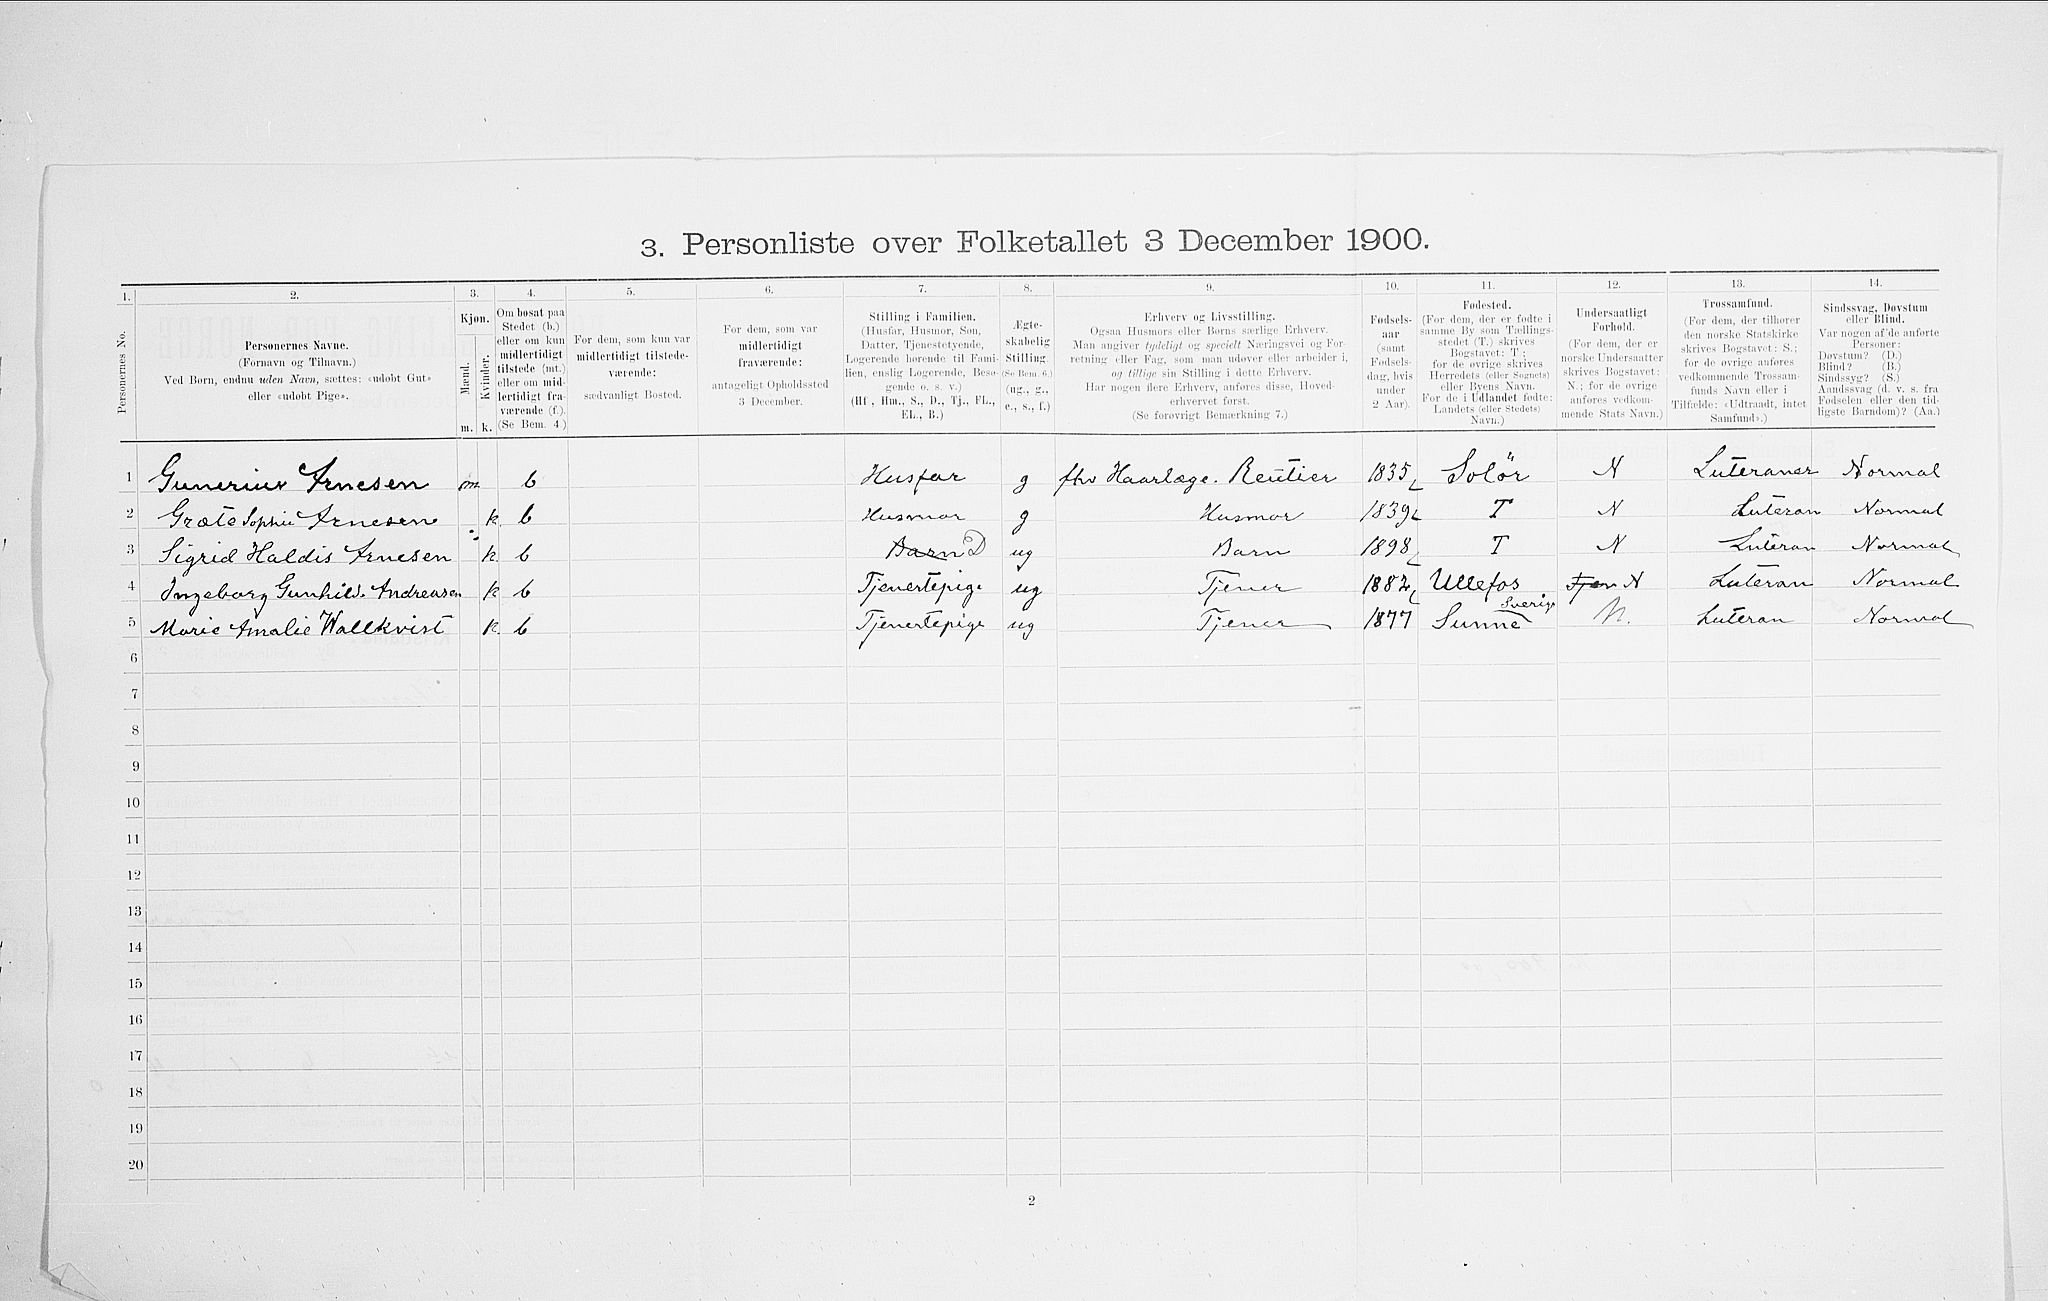 3. Personliste over Folketallet 3 December 1900.
1. 2. 3. 4. 5. 6. 7. 8. 9. 10. 11. 12. 13. 14.
Personernes No.
Personernes Navne.
(Fornavn og Tilnavn.)
Ved Børn, endnu uden Navn, sættes: «udøbt Gut»
eller «udøbt Pige».
Kjøn.
Mænd.
Kvinder.
m. k.
Om bosat paa
Stedet (b.)
eller om kun
midlertidigt
tilstede (mt.)
eller om mid-
lertidigt fra-
værende (f.).
(Se Bem. 4.)
For dem, som kun var
midlertidigt tilstede-
værende:
sædvanligt Bosted.
For dem, som var
midlertidigt
fraværende:
antageligt Opholdssted
3 December.
Stilling i Familien.
(Husfar, Husmor, Søn,
Datter, Tjenestetyende,
Logerende hørende til Fami-
lien, enslig Logerende, Besø-
gende o. s. v.)
(Hf., Hm., S., D., Tj., FL.,
EL., B.)
Ægte-
skabelig
Stilling.
(Se Bem. 6.)
(ug., g.,
e., s., f.)
Erhverv og Livsstilling.
Ogsaa Husmors eller Børns særlige Erhverv.
Man angiver tydeligt og specielt Næringsvei og For-
retning eller Fag, som man udøver eller arbeider i,
og tillige sin Stilling i dette Erhverv.
Har nogen flere Erhverv, anføres disse, Hoved-
erhvervet først.
(Se forøvrigt Bemerkning 7.)
Fødsels-
aar
(samt
Fødsels-
dag, hvis
under
2 Aar).
Fødested.
(For dem, der er fødte i
samme By som Tællings-
stedet (T.) skrives
Bogstavet: T.;
for de øvrige skrives
Herredets (eller Sognets)
eller Byens Navn.
For de i Udlandet fødte:
Landets (eller Stedets)
Navn.)
Undersaatligt
Forhold.
(For dem, der er
norske Undersaatter
skrives Bogstavet:
N.; for de øvrige
anføres vedkom-
mende Stats Navn.)
Trossamfund.
(For dem, der tilhører
den norske Statskirke
skrives Bogstavet: S.;
for de øvrige anføres
vedkommende Trossam-
funds Navn eller i
Tilfælde: «Udtraadt, intet
Samfund».)
Sindssvag, Døvstum
eller Blind.
Var nogen af de anførte
Personer:
Døvstum? (D.)
Blind? (B.)
Sindssyg? (S.)
Aandssvag (d. v. s. fra
Fødselen eller den tid-
ligste Barndom)? (Aa.)
1 Gunerius Arnesen m b Husfar g fhv Haarlæge. Rentier 1835 Solör N Luteraner Normal
2 Græte Sophie Arnesen k b Husmor g Husmor 1839 T N Luteran Normal
3 Sigrid Haldis Arnesen k b Barn D ug Barn 1898 T N Luteran Normal
4 Ingeborg Gunhild. Andreasen k b Tjenertepige ug Tjener 1882 Ullefos Tjen N Luteran Normal
5 Marie Amalie Wallkvist k b Tjenertepige ug Tjener 1877 Sunne Sverige N. Luteran Normal
6
7
8
9
10
11
12
13
14
15
16
17
18
19
20
2